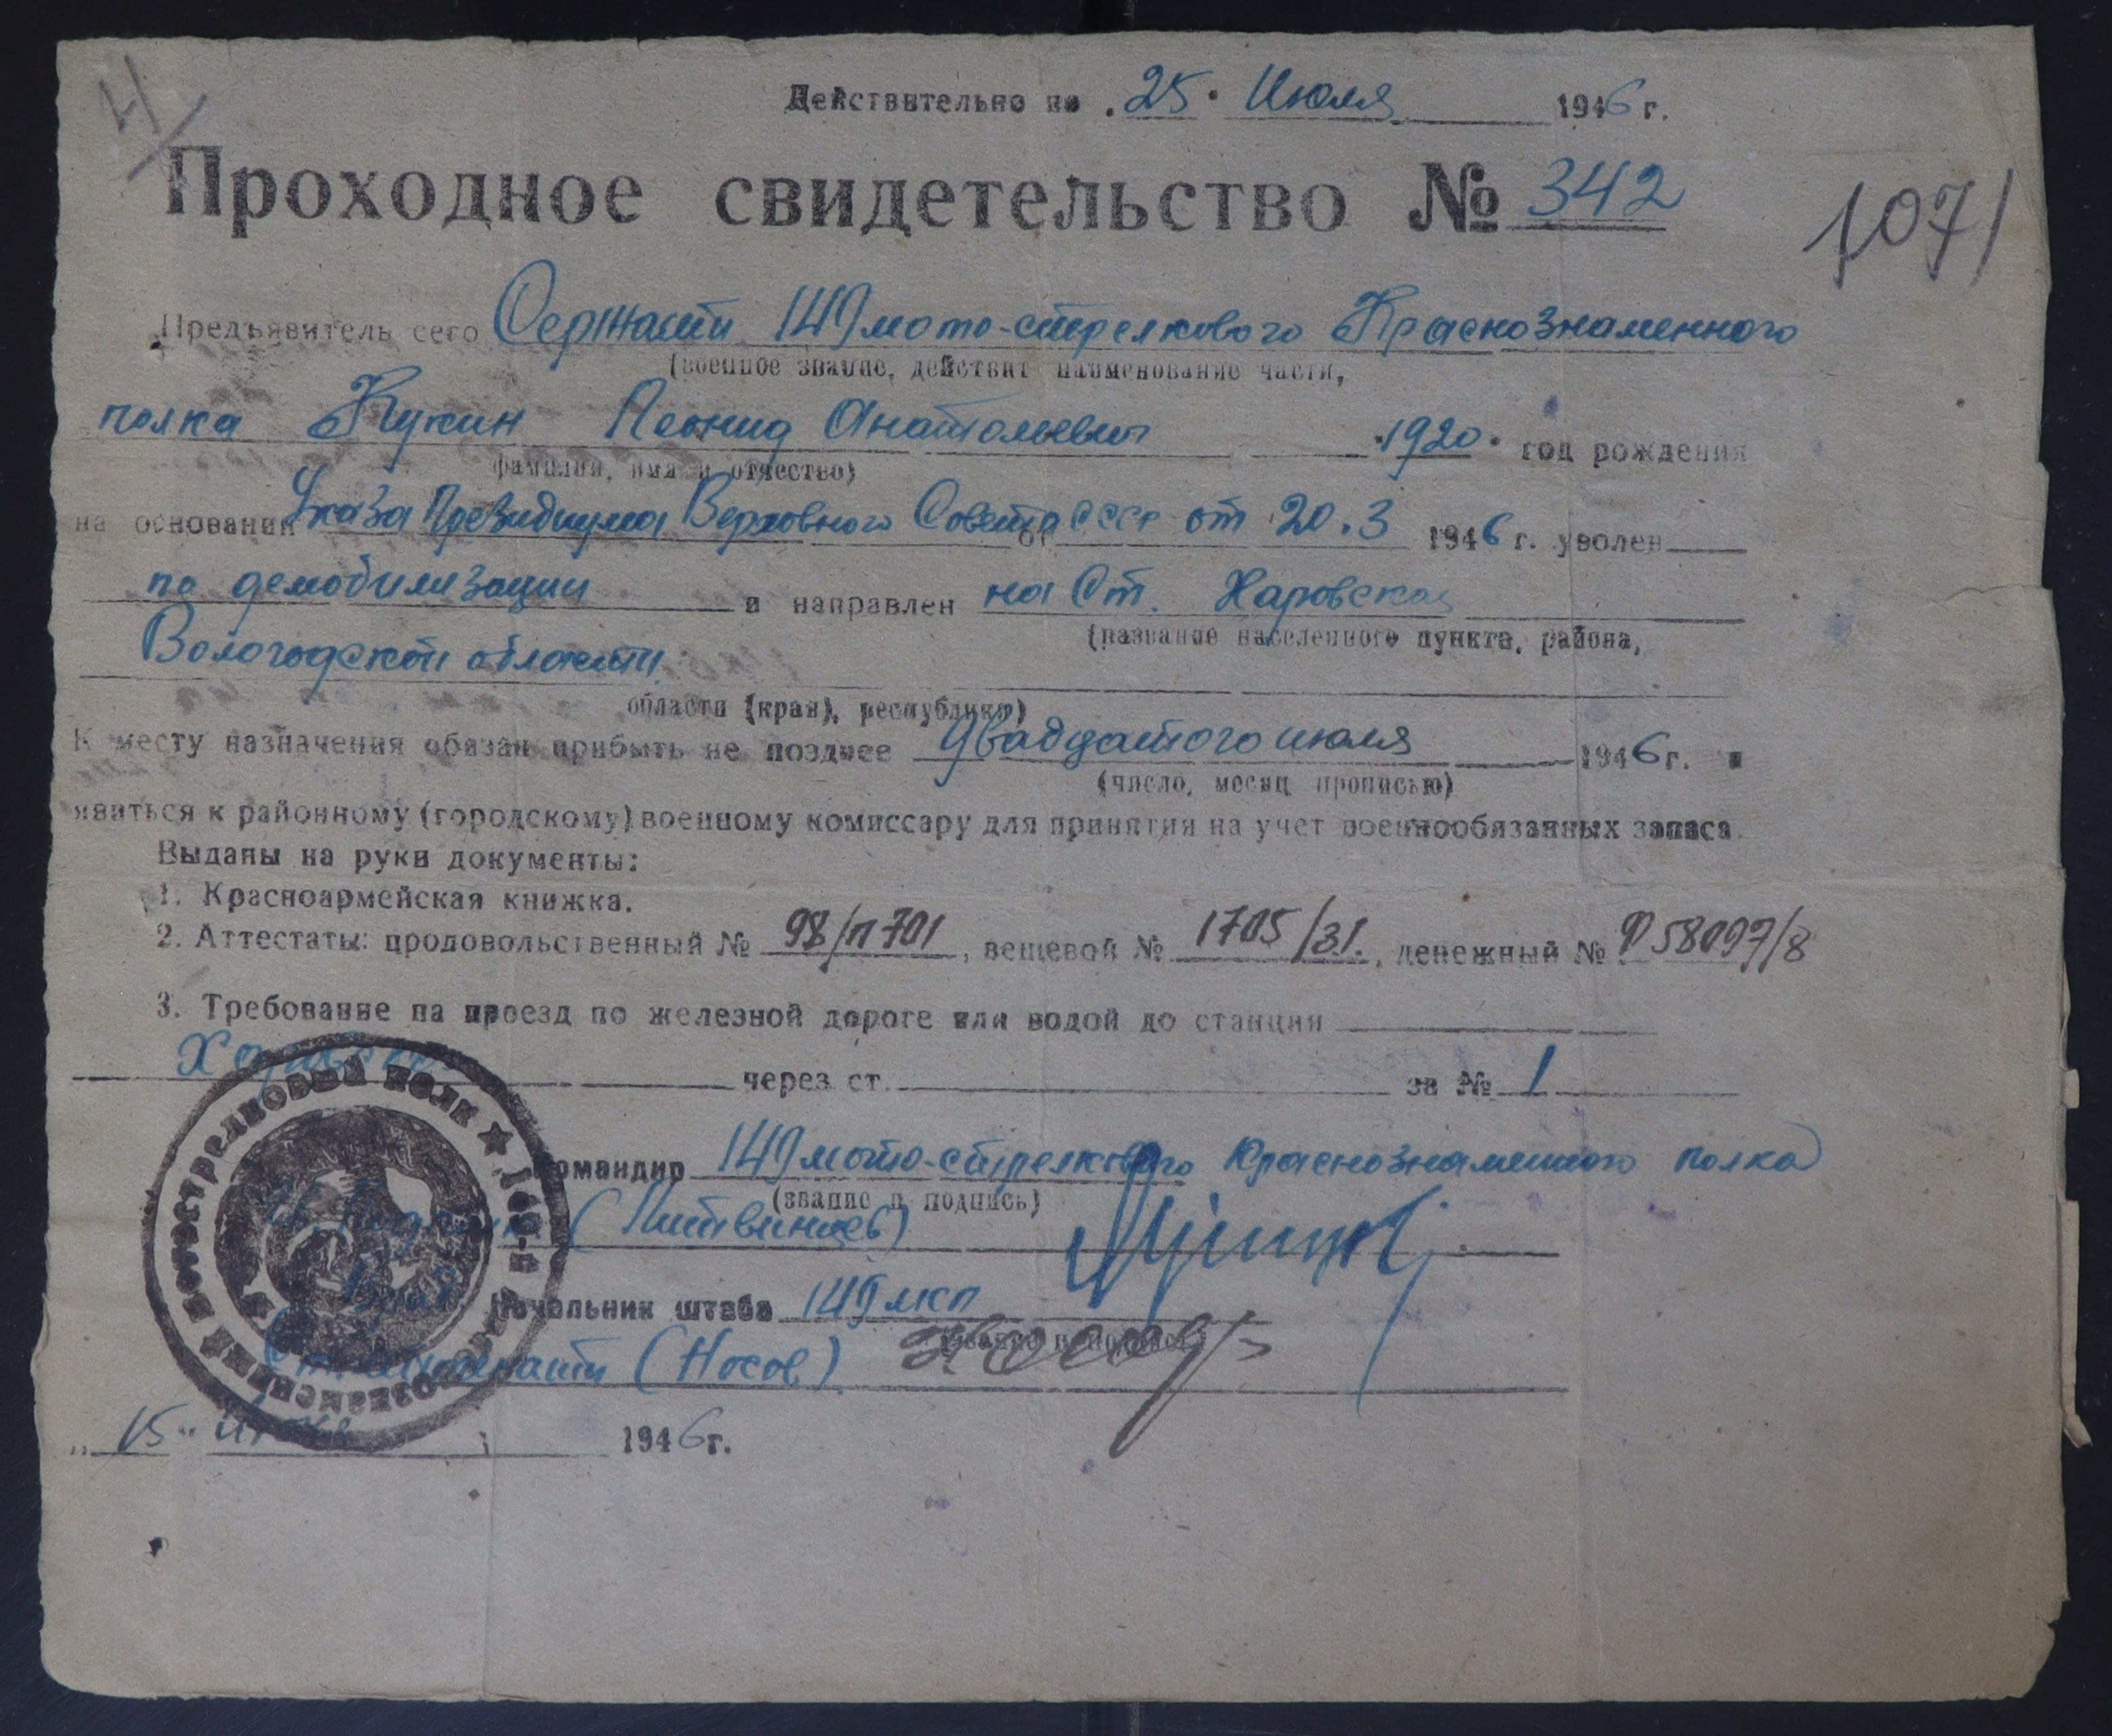 Действительно по "25" Июля 1946 г.
Проходное свидетельство № 342
1071
Предъявитель сего Сержант 149 мото-стрелкового Краснознаменного
(военное звание, действит наименование части,
полка Кукин Леонид Анатольевич "1920" год рождения
фамилия, имя и отчество)
на основании Указа Президиума Верховного Совета СССР от 20.3 1946 г. уволен
по демобилизации и направлен на ст. Харовская
(название населенного пункта, района,
Вологодской области
области (края), республики)
К месту назначения обязан прибыть не позднее двадцатого июля 1946 г. и
(число, месяц прописью)
явиться к районному (городскому) военному комиссару для принятия на учет военнообязанных запаса
Выданы на руки документы:
1. Красноармейская книжка.
2. Аттестаты: продовольственный № 98/п701, вещевой № 1705/31., денежный № Ф58097/8
3. Требование на проезд по железной дороге или водой до станции
через ст. за № 1
Командир 149 мото-стрелкового Краснознаменного полка
(звание и подпись)
(Литвинцев)
Начальник штаба 149 мсп
Ст. лейтенант (Носов)
"15" 1946 г.
мотострелковый полк ★ 149-й